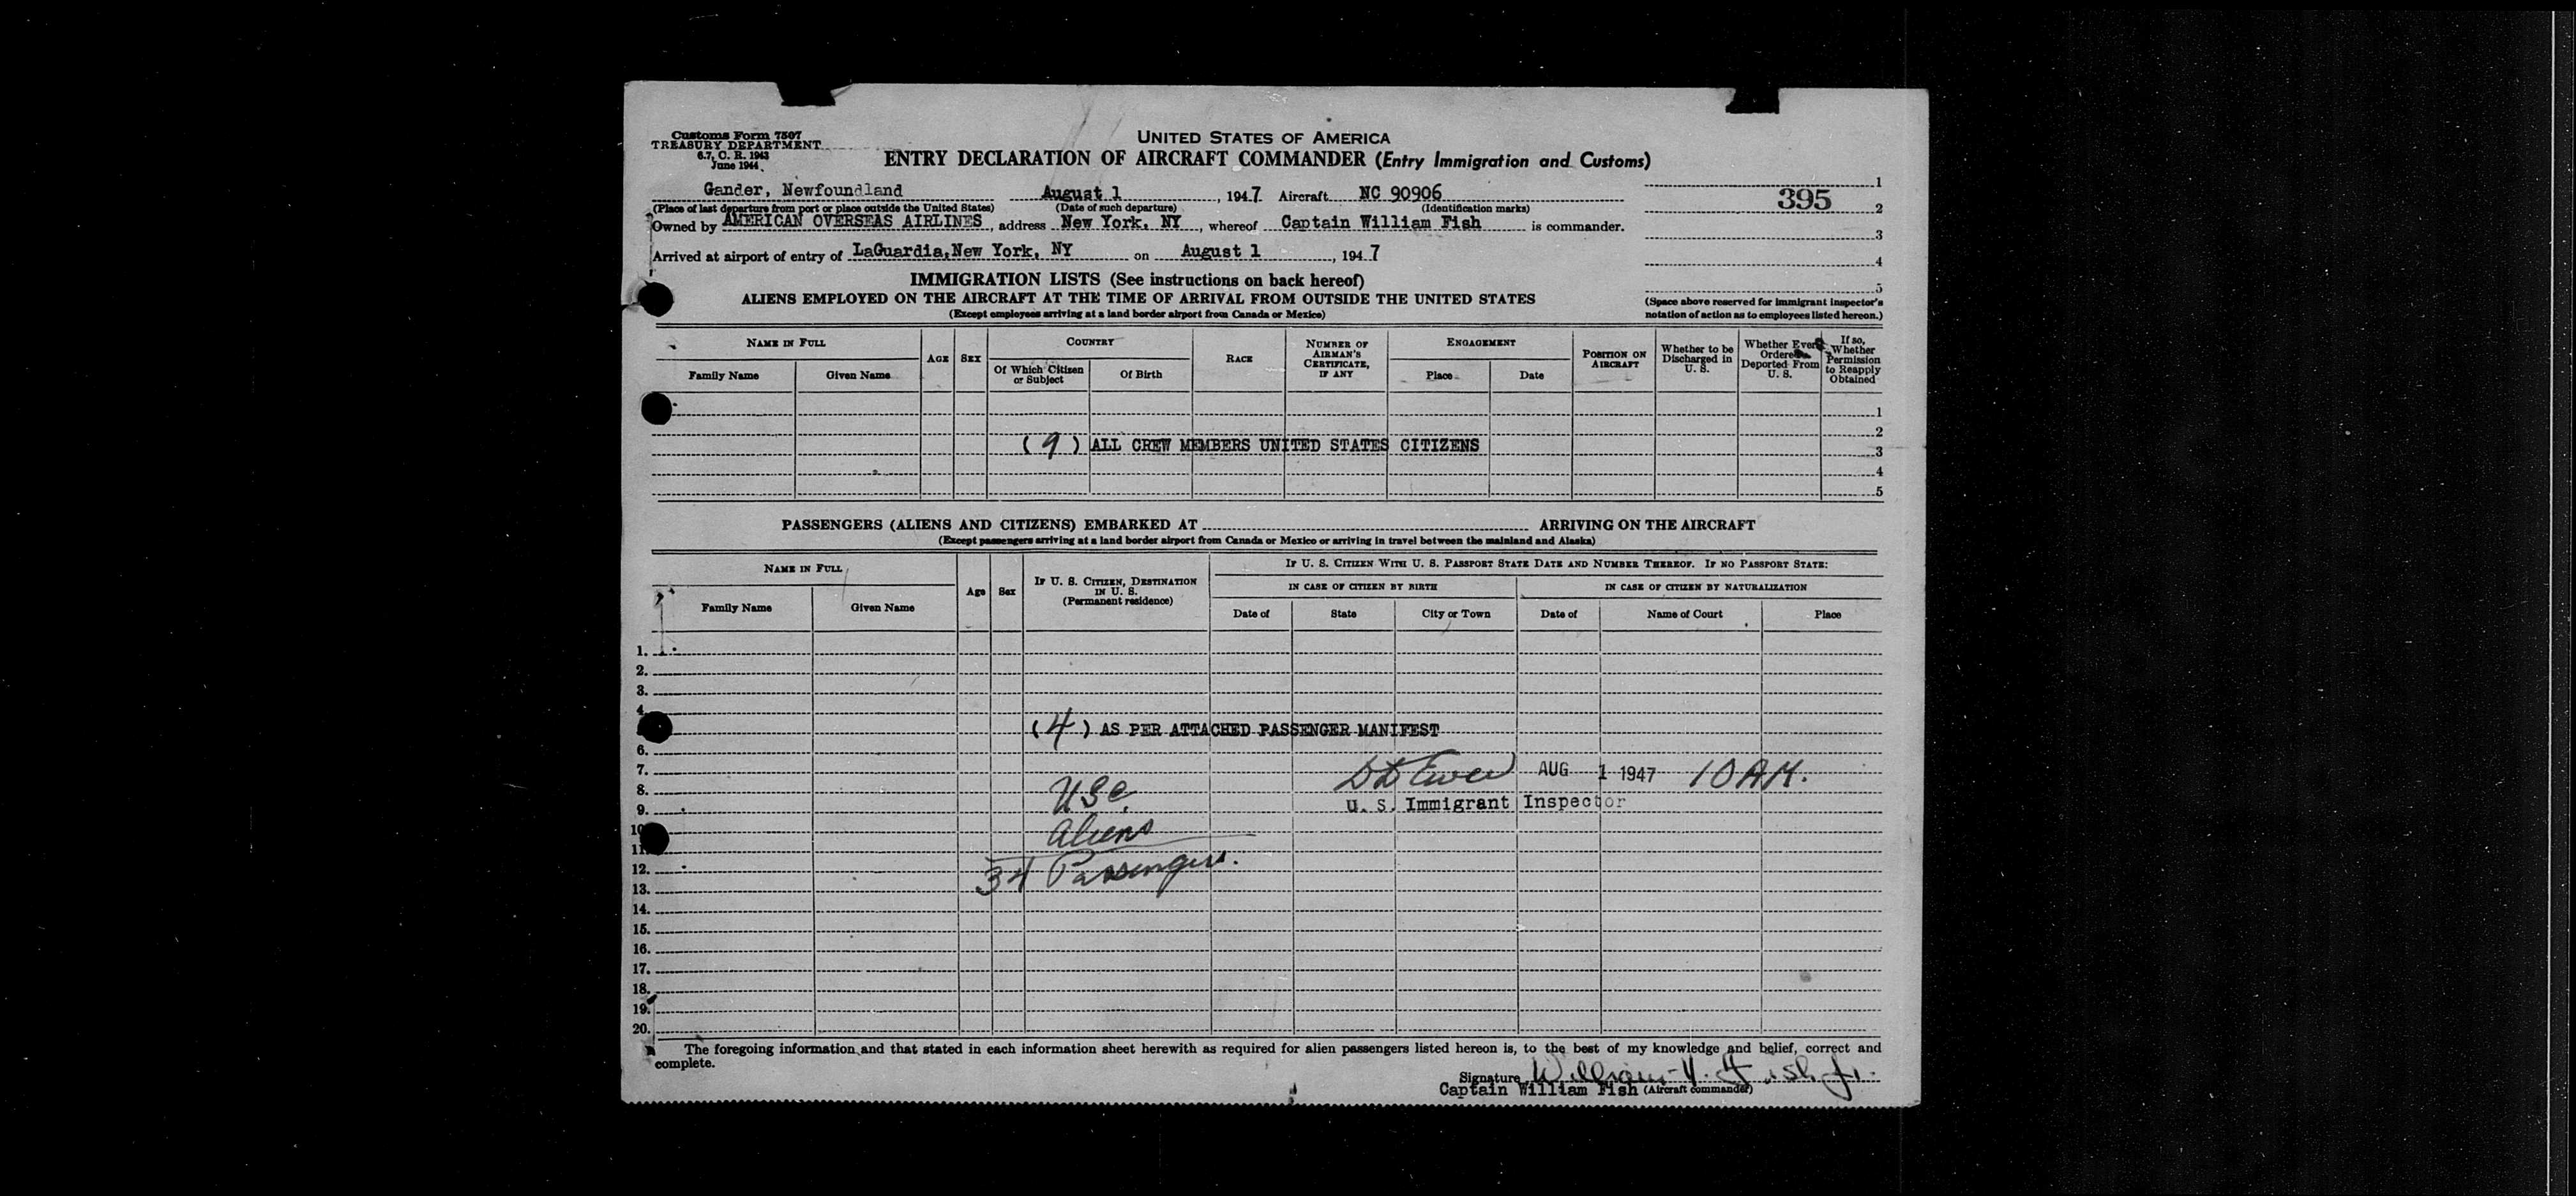 Customs Form 7507
TREASURY DEPARTMENT
6.7, C. R. 1943
June 1944
UNITED STATES OF AMERICA
ENTRY DECLARATION OF AIRCRAFT COMMANDER (Entry Immigration and Customs)
Gander, Newfoundland August 1, 1947 Aircraft NC 90906
(Place of last departure from port or place outside the United States) (Date of such departure) (Identification marks)
Owned by AMERICAN OVERSEAS AIRLINES, address New York, NY, whereof Captain William Fish is commander.
Arrived at airport of entry of LaGuardia,New York, NY on August 1, 1947
1
395
2
3
4
5
(Space above reserved for immigrant inspector's
notation of action as to employees listed hereon.)
IMMIGRATION LISTS (See instructions on back hereof)
ALIENS EMPLOYED ON THE AIRCRAFT AT THE TIME OF ARRIVAL FROM OUTSIDE THE UNITED STATES
(Except employees arriving at a land border airport from Canada or Mexico)
NAME IN FULL
Family Name Given Name
AGE SEX
COUNTRY
Of Which Citizen or Subject
Of Birth
RACE
NUMBER OF AIRMAN'S CERTIFICATE, IF ANY
ENGAGEMENT
Place Date
POSITION ON AIRCRAFT
Whether to be Discharged in U. S.
Whether Ever Ordered Deported From U. S.
If so, Whether Permission to Reapply Obtained
1
2
(9) ALL CREW MEMBERS UNITED STATES CITIZENS
3
4
5
PASSENGERS (ALIENS AND CITIZENS) EMBARKED AT ARRIVING ON THE AIRCRAFT
(Except passengers arriving at a land border airport from Canada or Mexico or arriving in travel between the mainland and Alaska)
NAME IN FULL
Family Name Given Name
Age Sex
IF U. S. CITIZEN, DESTINATION IN U. S.
(Permanent residence)
IF U. S. CITIZEN WITH U. S. PASSPORT STATE DATE AND NUMBER THEREOF. IF NO PASSPORT STATE:
IN CASE OF CITIZEN BY BIRTH IN CASE OF CITIZEN BY NATURALIZATION
Date of State City or Town Date of Name of Court Place
1.
2.
3.
4.
(4) AS PER ATTACHED PASSENGER MANIFEST
6.
7. AUG 1 1947 10 AM.
8. USC.
9. U. S. Immigrant Inspector
10 Aliens
11.
12. 34 Passengers.
13.
14.
15.
16.
17.
18.
19.
20.
The foregoing information and that stated in each information sheet herewith as required for alien passengers listed hereon is, to the best of my knowledge and belief, correct and
complete.
Signature William H. Fish Jr.
Captain William Fish (Aircraft commander)